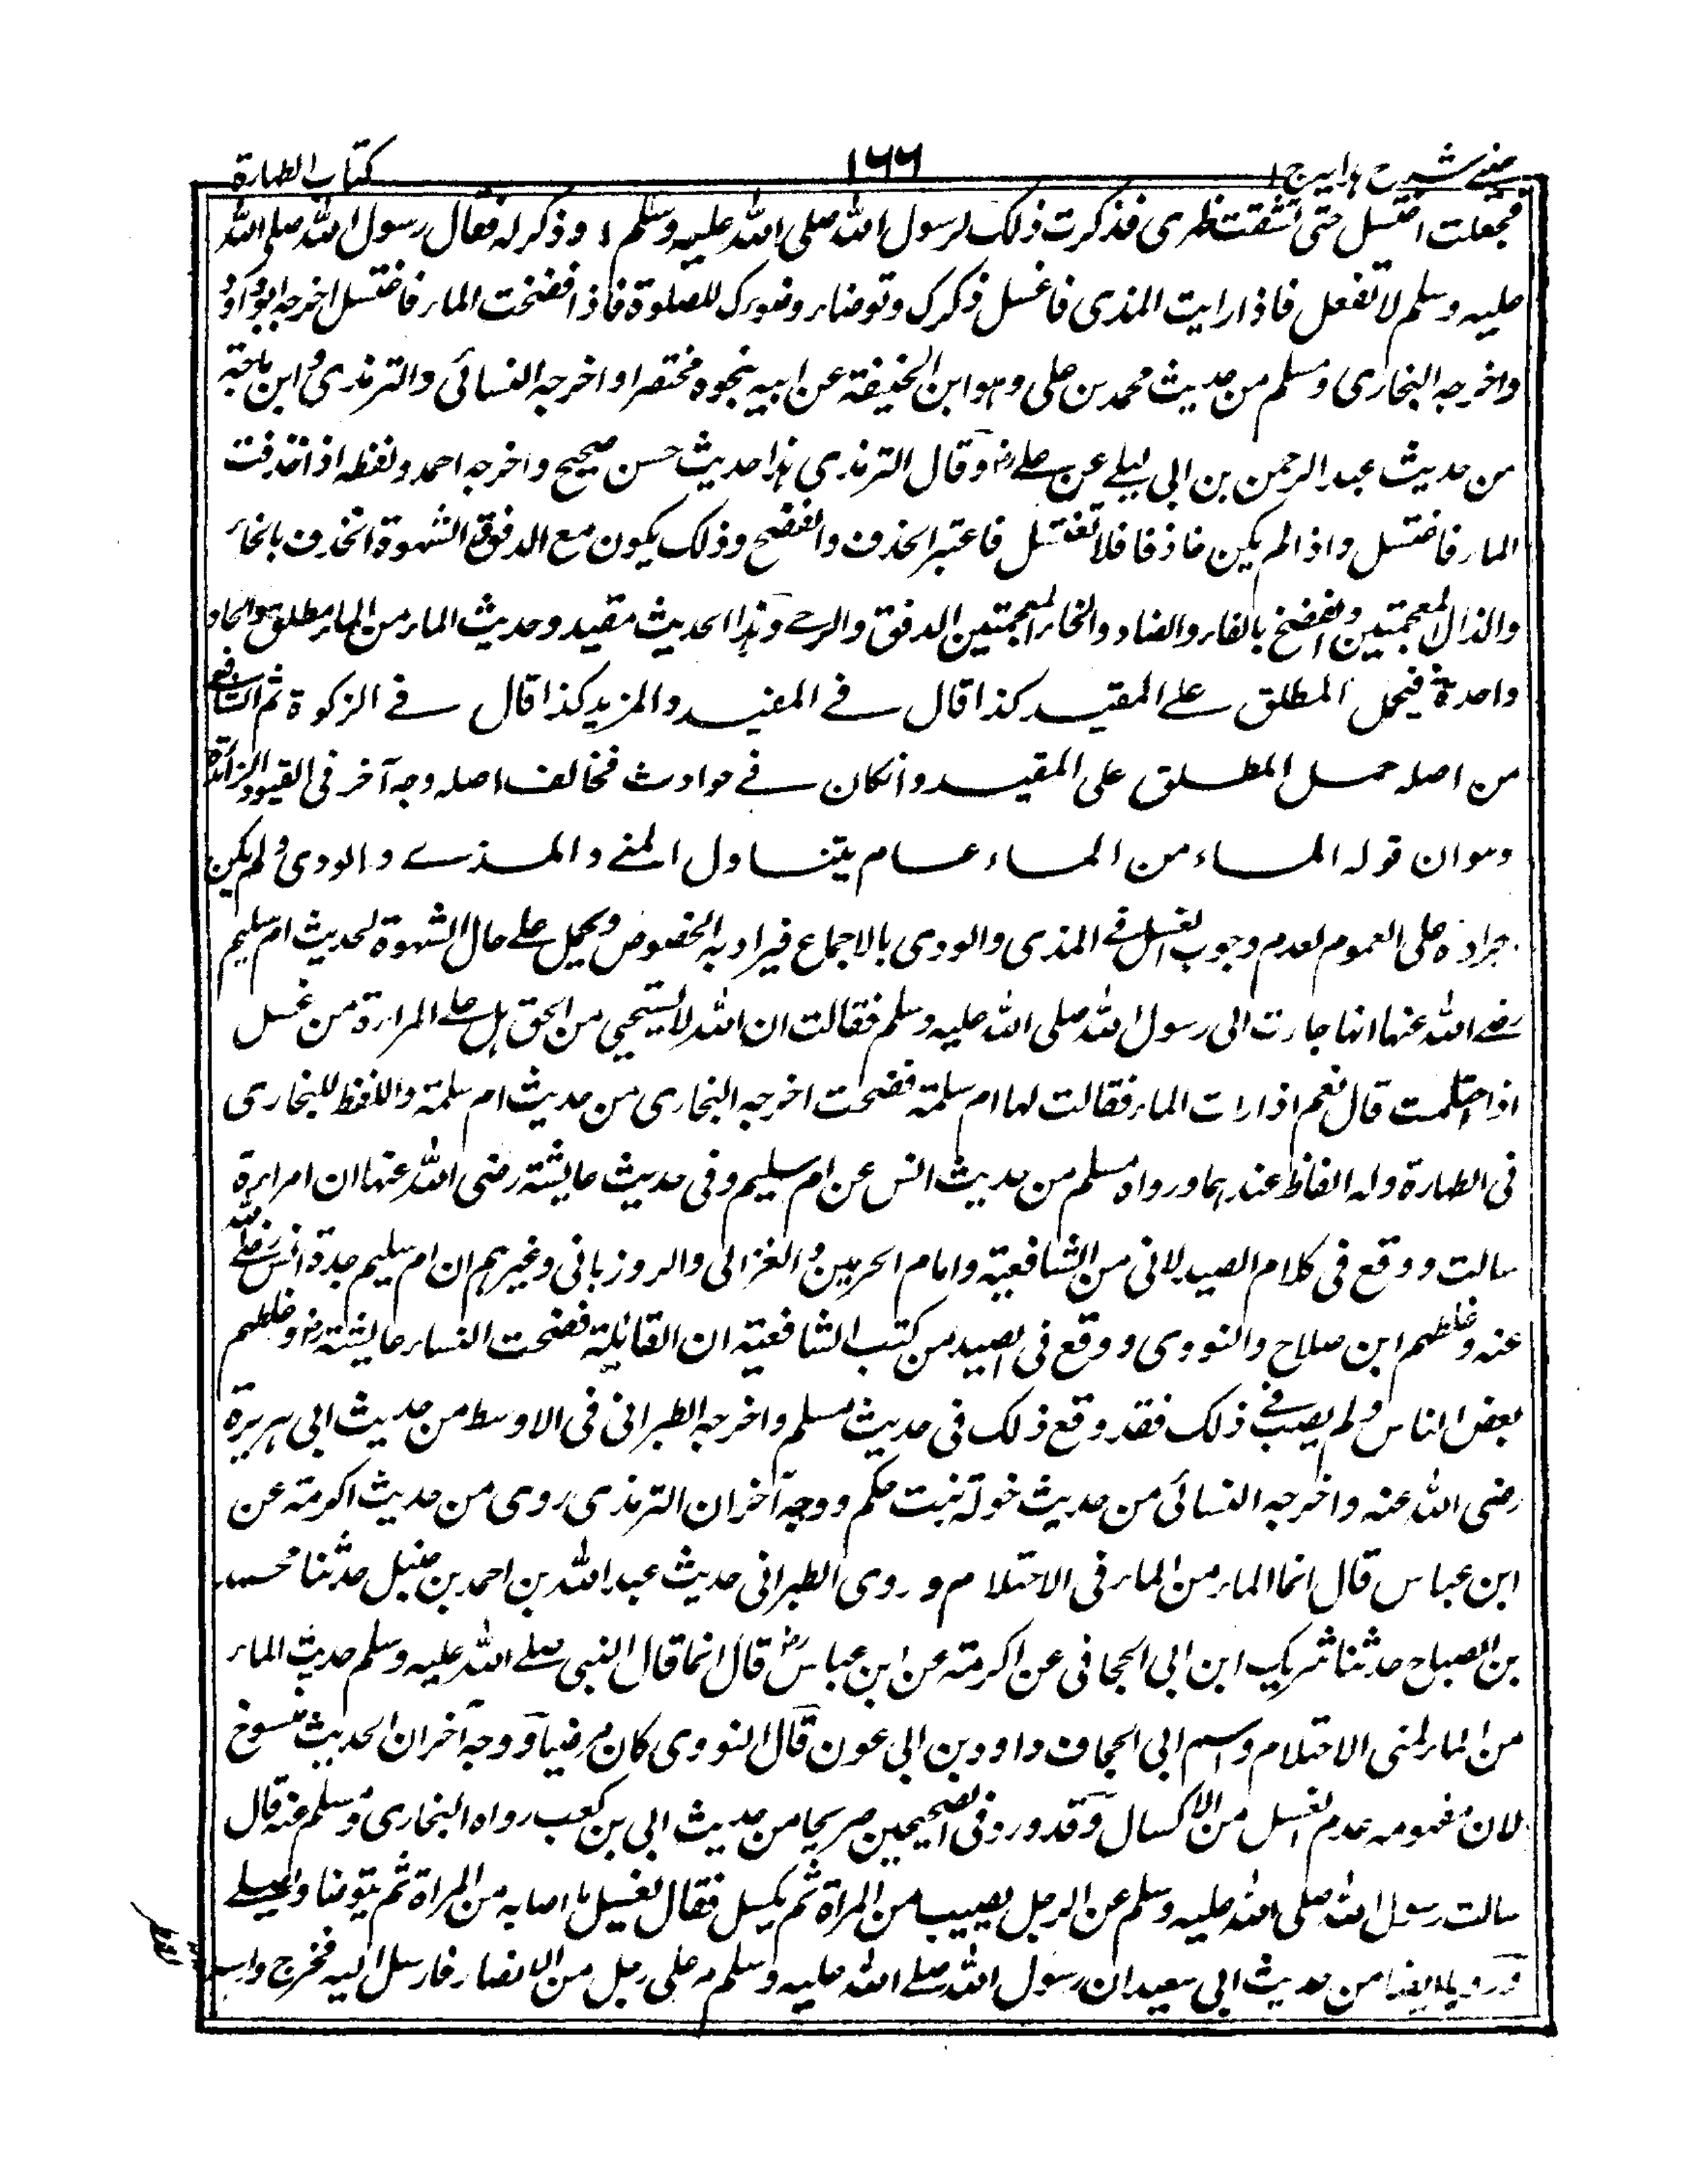 عینے شرح ہدایہ ج ۱
۱۶۶
کتاب الطہارة
فجعلت اغتسل حتى تشقت ظہری فذکرت ذلک لرسول اللہ صلی اللہ علیہ وسلم او ذکر لہ فقال رسول اللہ صلی اللہ
علیہ وسلم لا تفعل فاذا رایت المذی فاغسل ذکرک وتوضاء وضوءک للصلوة فاذا فضخت الماء فاغتسل اخرجہ ابوداود
واخرجہ البخاری ومسلم من حدیث محمد بن علی وہو ابن الحنیفة عن ابیہ بنحوہ مختصرا واخرجہ النسائی والترمذی وابن ماجة
من حدیث عبد الرحمن بن ابی لیلے عن علے رض وقال الترمذی ہذا حدیث حسن صحیح واخرجہ احمد ولفظہ اذا خذفت
الماء فاغتسل واذا لم یکن خاذفا فلا تغتسل فاعتبر الخذف والفضخ وذلک یکون مع الدفق والشہوة الخذف بالخاء
والذال المعجمتین والفضخ بالفاء والضاد والخاء المعجمتین الدفق والرمے وہذا الحدیث مقید وحدیث الماء من الماء مطلق والحادثة
واحدة فیحمل المطلق علے المقید کذا قال فے المفید والمزید کذا قال فے الزکوة ثم الشافعے
من اصلہ حمل المطلق على المقید وانکان فے حوادث فخالف اصلہ وجہ آخر فی القیود الزائدة
وہو ان قولہ الماء من الماء عام یتناول المنے والمذے والودی ولم یکن
جرادہ علی العموم لعدم وجوب الغسل فے المذی والودی بالاجماع فیراد بہ الخصوص ویحمل علے حال الشہوة لحدیث ام سلیم
رضے اللہ عنہا انہا جاءت الی رسول اللہ صلی اللہ علیہ وسلم فقالت ان اللہ لا یستحیی من الحق ہل علے المراءة من غسل
اذا احتلمت قال نعم اذا رات الماء فقالت لہا ام سلمة فضحت اخرجہ البخاری من حدیث ام سلمة واللفظ للبخاری
فی الطہارة ولہ الفاظ عندہما ورواہ مسلم من حدیث انس عن ام سلیم وفی حدیث عایشة رضی اللہ عنہا ان امراءة
سالت ووقع فی کلام الصیدلانی من الشافعیة وامام الحرمین والغزالی والروزبانی وغیرہم ان ام سلیم جدة انس رضے اللہ
عنہ وغلطہم ابن صلاح والنووی ووقع فی الصید من کتب الشافعیة ان القایلة فضحت النساء عایشة رض وغلطہم
بعض الناس ولم یصب فے ذلک فقد وقع ذلک فی حدیث مسلم واخرجہ الطبرانی فی الاوسط من حدیث ابی ہریرة
رضی اللہ عنہ واخرجہ النسائی من حدیث خولة بنت حکم ووجہ آخر ان الترمذی روی من حدیث اکرمة عن
ابن عباس قال انما الماء من الماء فی الاحتلام وروی الطبرانی حدیث عبد اللہ بن احمد بن حنبل حدثنا محمد
بن الصباح حدثنا شریک ابن ابی الجحافی عن اکرمة عن ابن عباس رض قال انما قال النبی صلے اللہ علیہ وسلم حدیث الماء
من الماء لمنی الاحتلام واسم ابی الجحاف داود بن ابی عون قال النووی کان مرضیا ووجہ آخر ان الحدیث منسوخ
لان مفہومہ عدم الغسل من الاکسال وقد ورد فی الصحیحین صریحا من حدیث ابی بن کعب رواہ البخاری ومسلم عنہ قال
سالت رسول اللہ صلی اللہ علیہ وسلم عن الرجل یصیب من المراة ثم یکسل فقال یغسل ما اصابہ من المراة ثم یتوضا ویصلے
ورویا ایضا من حدیث ابی سعید ان رسول اللہ صلے اللہ علیہ وسلم مر على رجل من الانصار فارسل الیہ فخرج وراسہ